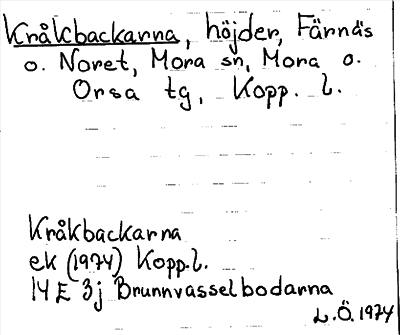 Kråkbackarna, höjder, Färnäs
o. Noret, Mora sn, Mora o.
Orsa tg, Kopp. l.
Kråkbackarna
ek (1974) Kopp.l.
14 E 3j Brunnvasselbodarna
L.Ö. 1974